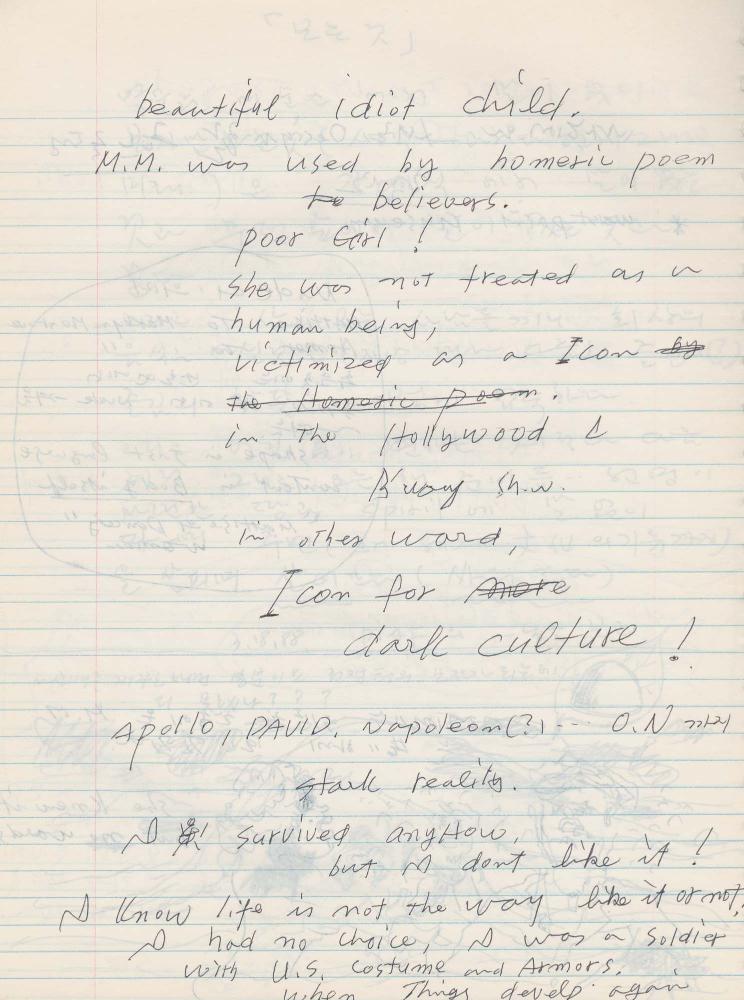 beautiful idiot child.
M.M. was used by homeric poem
to believers.
poor Girl !
she was not treated as a
human being,
victimized as a Icon by
the Homeric poem.
in the Hollywood &
B'way show.
in other word,
Icon for more
dark culture !
Apollo, DAVID, Napoleon(?) ... O.N 까지
stark reality.
I survived anyHow,
but I dont like it !
I Know life is not the way like it or not,
I had no choice, I was a Soldier
with U.S. costume and Armors.
when Things develp again